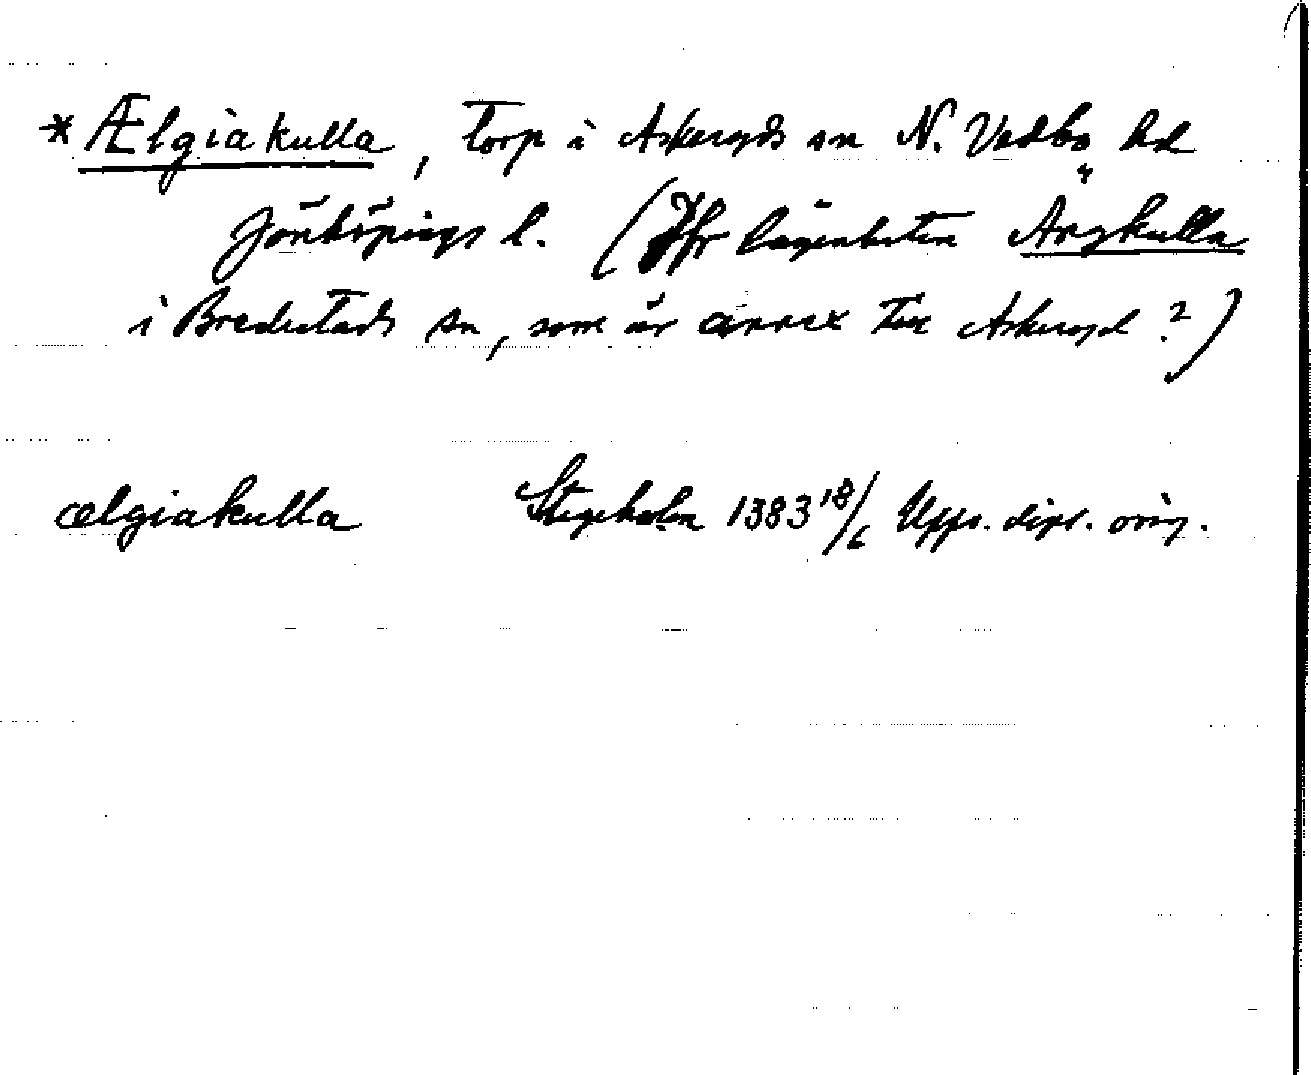 *Ælgiakulla, torp i Askeryds sn N. Vedbo hd
Jönköpings l. (Jfr lägenheten Ängkulla
i Bredestads sn, som är annex till Askeryd?)
ælgiakulla Stegeholm 1383 18/6 Upps. dipl. orig.